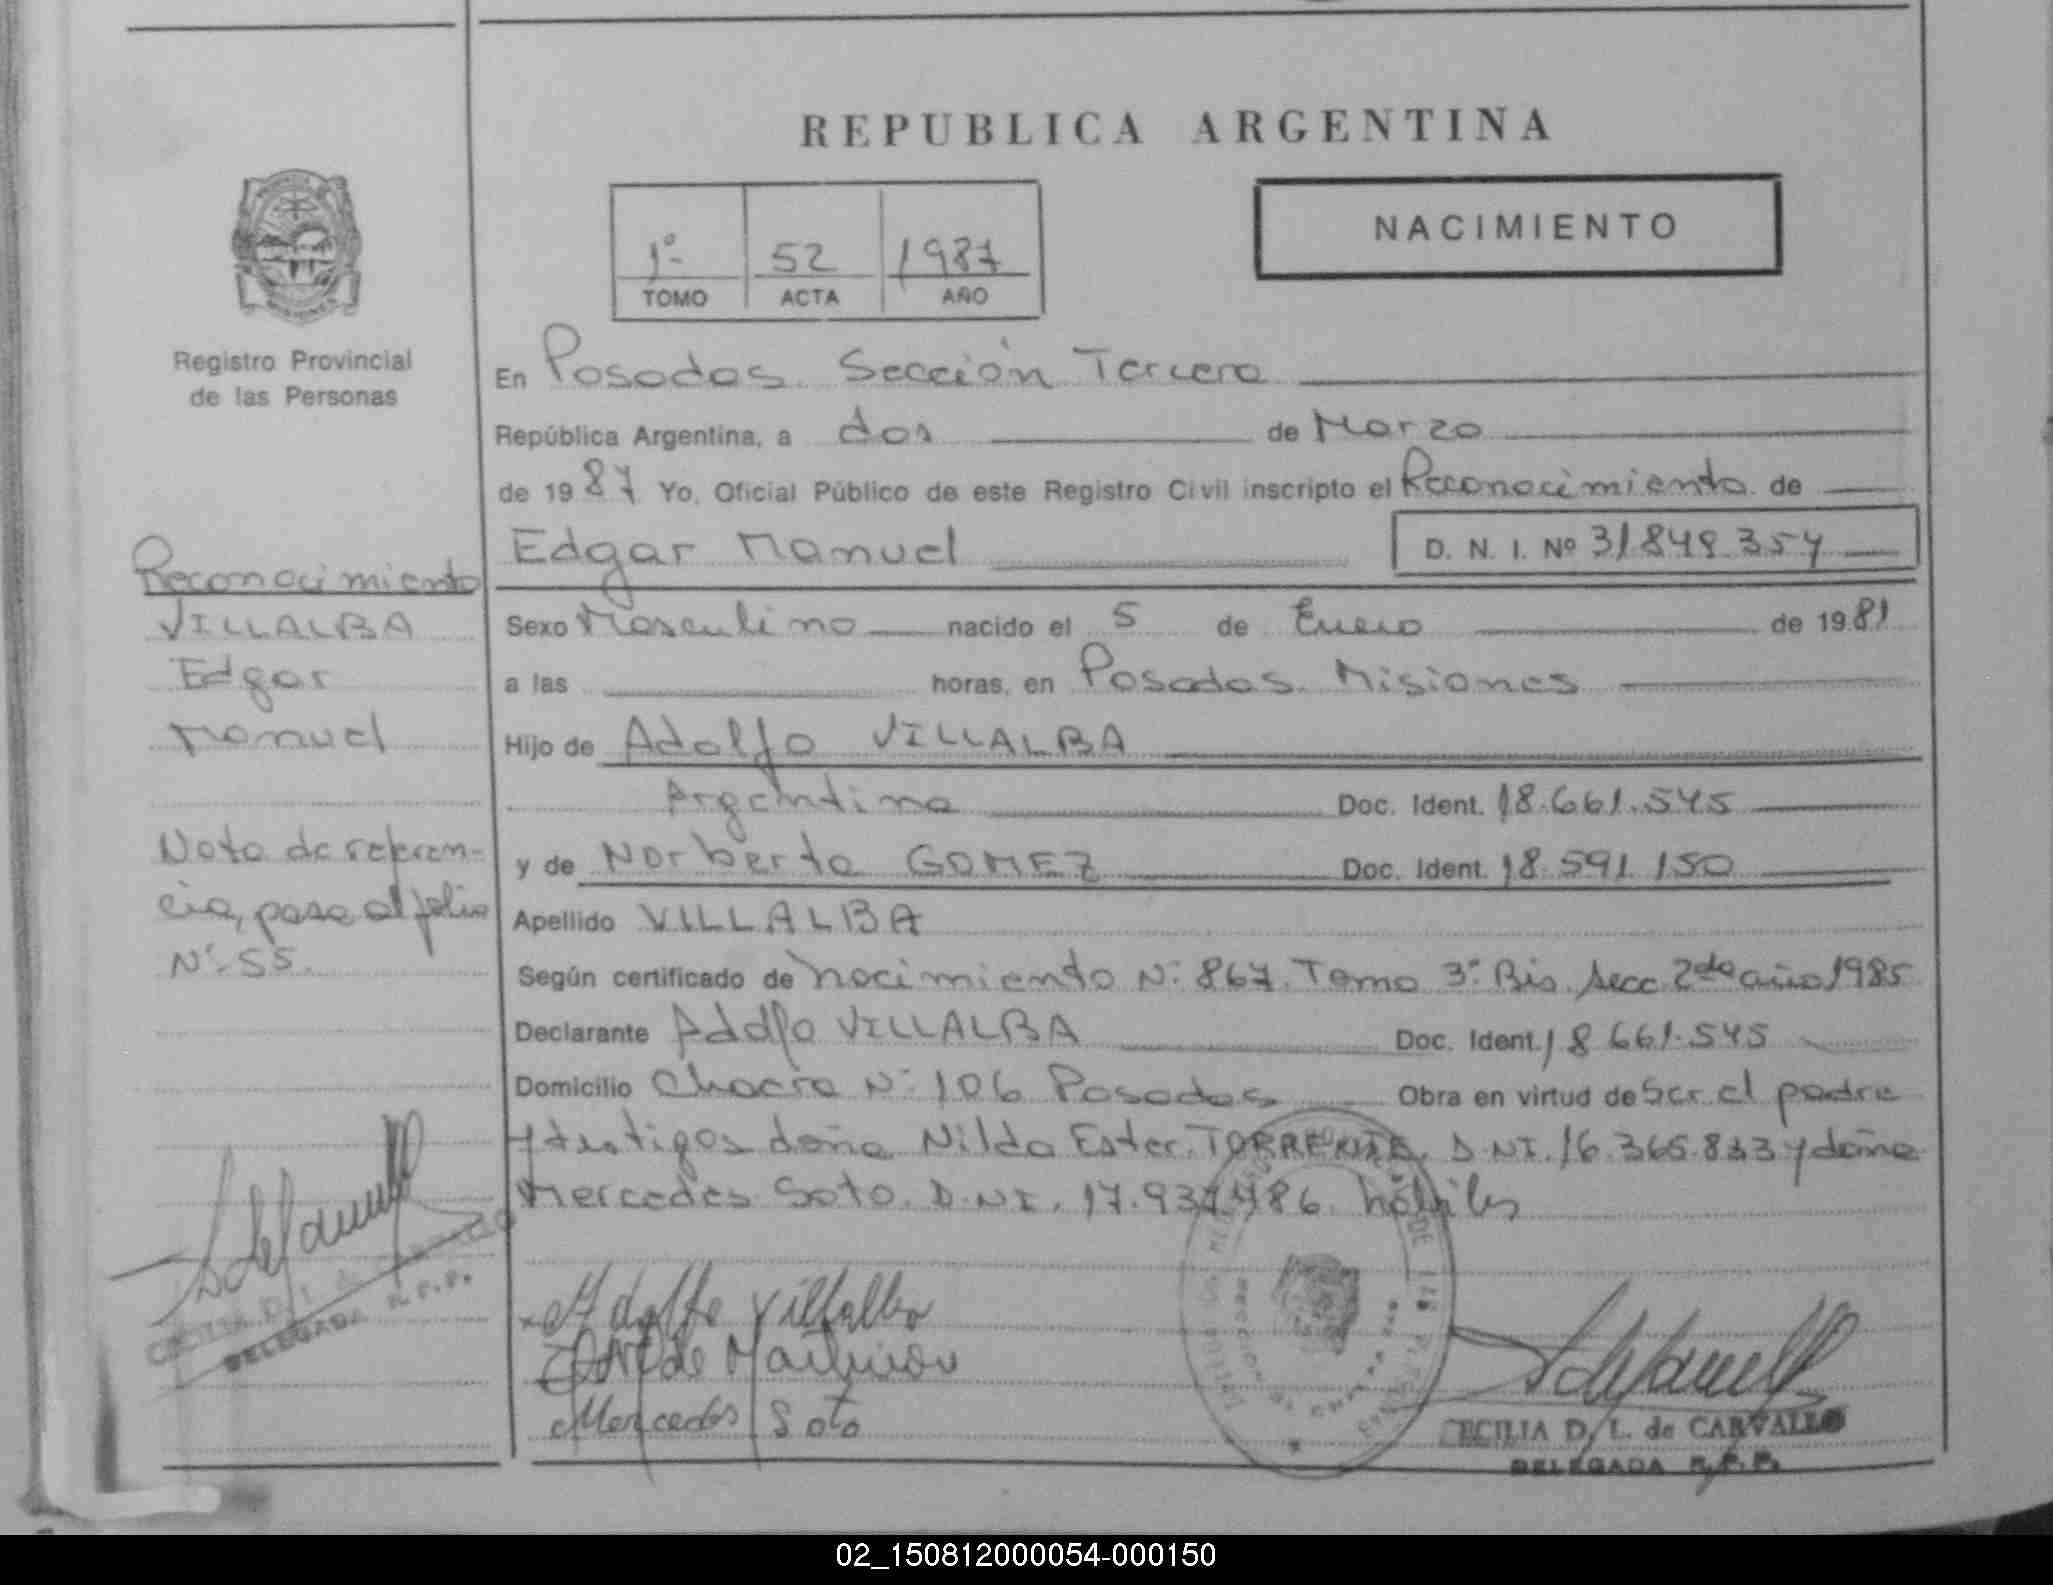 REPUBLICA ARGENTINA
1º 52 1987
TOMO ACTA AÑO
NACIMIENTO
Registro Provincial
de las Personas
En Posadas. Sección Tercera
República Argentina, a dos de Marzo
de 1987 Yo, Oficial Público de este Registro Civil inscripto el Reconocimiento de
Edgar Manuel D. N. I. Nº 31848.354
Sexo Masculino nacido el 5 de Enero de 1981
a las horas, en Posadas. Misiones
Hijo de Adolfo VILLALBA
Argentino Doc. Ident. 18.661.545
y de Norberta GOMEZ Doc. Ident. 18.591.150
Apellido VILLALBA
Según certificado de Nacimiento Nº 867. Tomo 3º Bis. Secc. 2da año 1985
Declarante Adolfo VILLALBA Doc. Ident. 18 661.545
Domicilio Chacra Nº 106 Posadas Obra en virtud de Ser el padre
y testigos doña Nilda Ester D.NI. 16.365.833 y doña
Mercedes Soto. D.NI. 17.937.486. hábiles
Reconocimiento
VILLALBA
Edgar
Manuel
Nota de referen-
cia, pasa al folio
Nº 55.
CECILIA D. L.
DELEGADA R.P.P.
Adolfo Villalba
Mercedes Soto
CECILIA D. L. de CARVALLO
DELEGADA R.P.P.
02_150812000054-000150